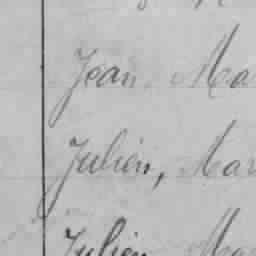 Jean, Ma
Julien, Mar
Julien Ma